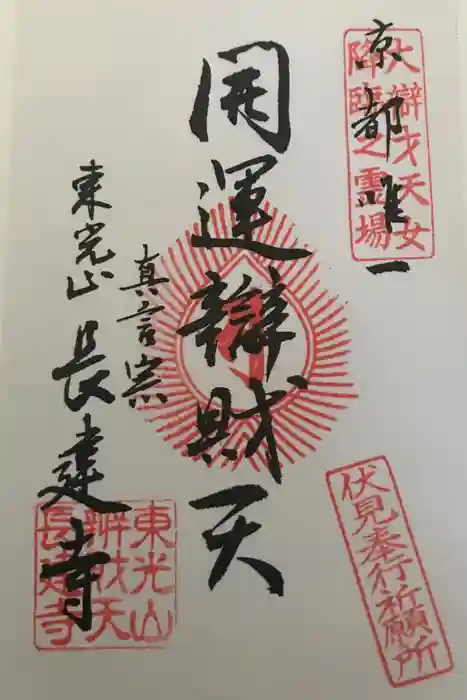 京都唯一
大辯才天女
降臨之霊場
開運辯財天
真言宗
東光山 長建寺
東光山
辨財天
長建寺
伏見奉行祈願所